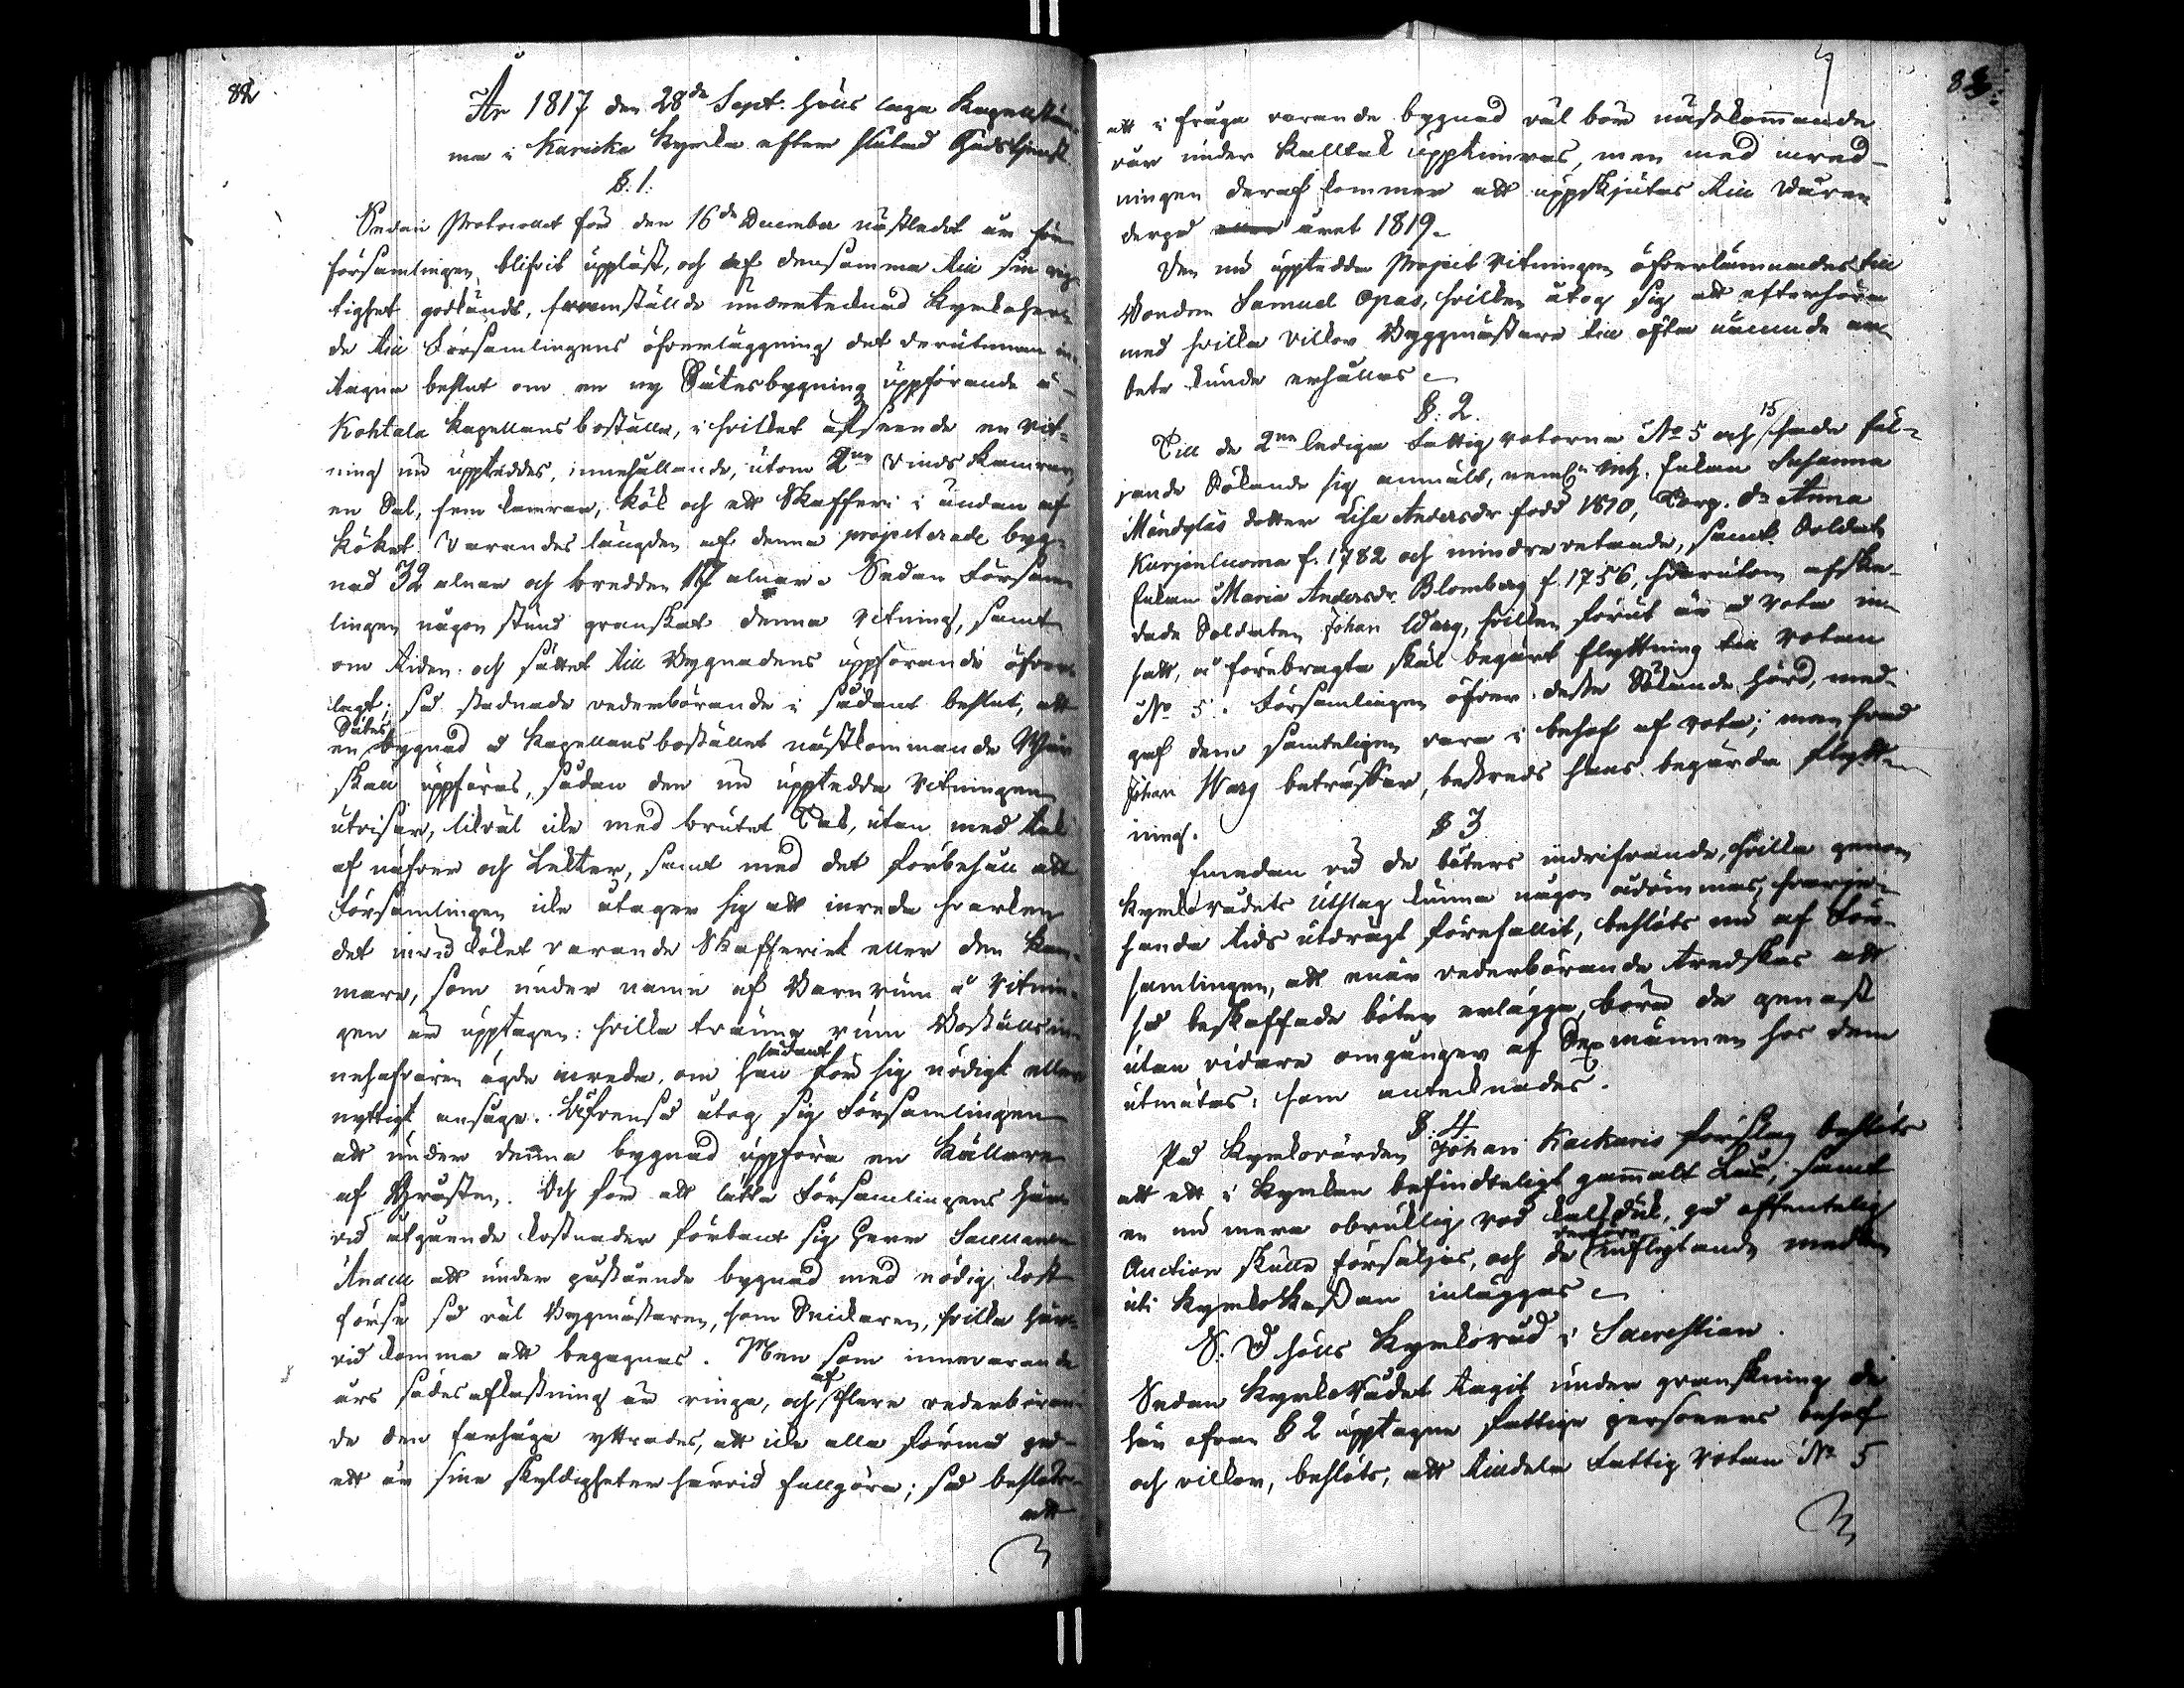 82
År 1817 den 28de Sept. hölls laga Kapellstäm-
ma i Karicka Kyrka efter slutad Gudstjenst.
§. 1.
Sedan Protocollet för den 16de December nästledit år för
församlingen blifvit uppläst, och af densamma till sin rig-
tighet godkändt, framställde undertecknad Kyrkoher-
de till Församlingens öfverläggning det derutinnan in-
tagna beslut om en ny Sätesbygning uppförande å
Kohtala Kapellans boställe, i hvilket afseende en rit-
ning nu uppteddes, innehållande, utom 2ne vinds kamrar,
en Sal, fem kamrar, kök och ett Skafferi i ändan af
köket. Varandes längden af denna projecterade byg-
nad 32 alnar och bredden 17 alnar. Sedan Försam-
lingen någon stund granskat denna ritning, samt
om tiden och sättet till Bygnadens uppförande öfver-
lagt; så stadnade vederbörande i sådant beslut, att
en Sätes bygnad å Kapellansbostället nästkommande Vår
skall uppföras, sådan den nu upptedda ritningen
utvisar, likväl icke med brutet Tak, utan med tak
af näfver och Läkter, samt med det förbehåll att
Församlingen icke åtager sig att inreda hvarken
det invid köket varande Skafferiet eller den kam-
mare, som under namn af Barnrum å ritnin-
gen är upptagen: hvilka tränne rum Boställsin-
nehafvaren ägde inreda, om han sådant för sig nödigt eller
nyttigt ansåge. Äfvenså åtog sig Församlingen
att under denna bygnad uppföra en källare
af Gråsten. Och för att lätta Församlingens här-
vid afgående kostnader förband sig Herr
att under påstående bygnad med nödig kost
förse så väl Bygmästaren, som Snickaren, hvilka här-
vid komma att begagnas. Men som innevarande
års sädesafkastning är ringa, och af flere vederböran-
de den farhåga yttrades, att icke alla förmå på
ett år sina skyldigheter härvid fullgöra; så beslöts
att
83
att i fråga varande bygnad väl bör nästkommande
vår under kalltak upptimras, men med inred-
ningen deraf kommer att uppskjutas till våren
derpå året 1819.
Den nu uppteddа Project ritningen öfverlämnades till
Bonden Samuel Opas, hvilken åtog sig att efterhöra
med hvilka vilkor Byggmästare till ofta nämnde ar-
bete kunde erhållas
§. 2.
Till de 2ne lediga Fattig rotorna No 5 och 15 hade föl-
jande Sökande sig anmält, neml. Enkan Susanna
dotter Lisa Andersdr född 1810, Torp. dr Anna
Kurjenluoma f. 1782 och mindre vetande, samt Soldats
Enkan Maria Andersdr Blomberg f. 1756, hvarutom afske-
dade Soldaten Johan Warg, hvilken förut är å rota in-
satt, å förebragta skäl begärt flyttning till rotan
No 5. Församlingen öfver desse Sökande hörd, med-
gaf dem samteligen vara i behof af rota; men hvad
Johan Warg beträffar, bestreds hans begärda flytt-
ning.
§ 3
Emedan vid de böters indrifvande, hvilka genom
Kyrkorådets Utslag kunna någon ådömmas, hvarje-
handa tids utdrägt förefallit, beslöts nu af För-
samlingen, att enär vederbörande tredskas att
så beskaffade böter erlägga, böra de genast
utan vidare omgånger af Sexmännen hos dem
utmätas: som antecknades.
§. 4
På Kyrkovärden Johan Kackuris förslag beslöts
att ett i Kyrkan befindteligt gammalt Ljus, samt
en nu mera obruklig röd kalkduk, på offentelig
Auction skulle försäljas, och de derföre inflytande medlen
uti KyrkoKassan inläggas
S. D hölls Kyrkoråd i Sacristian.
Sedan KyrkoRådet tagit under granskning de
här ofvan § 2 upptagne fattige personers behof
och vilkor, beslöts, att tilldela Fattig rotan No 5